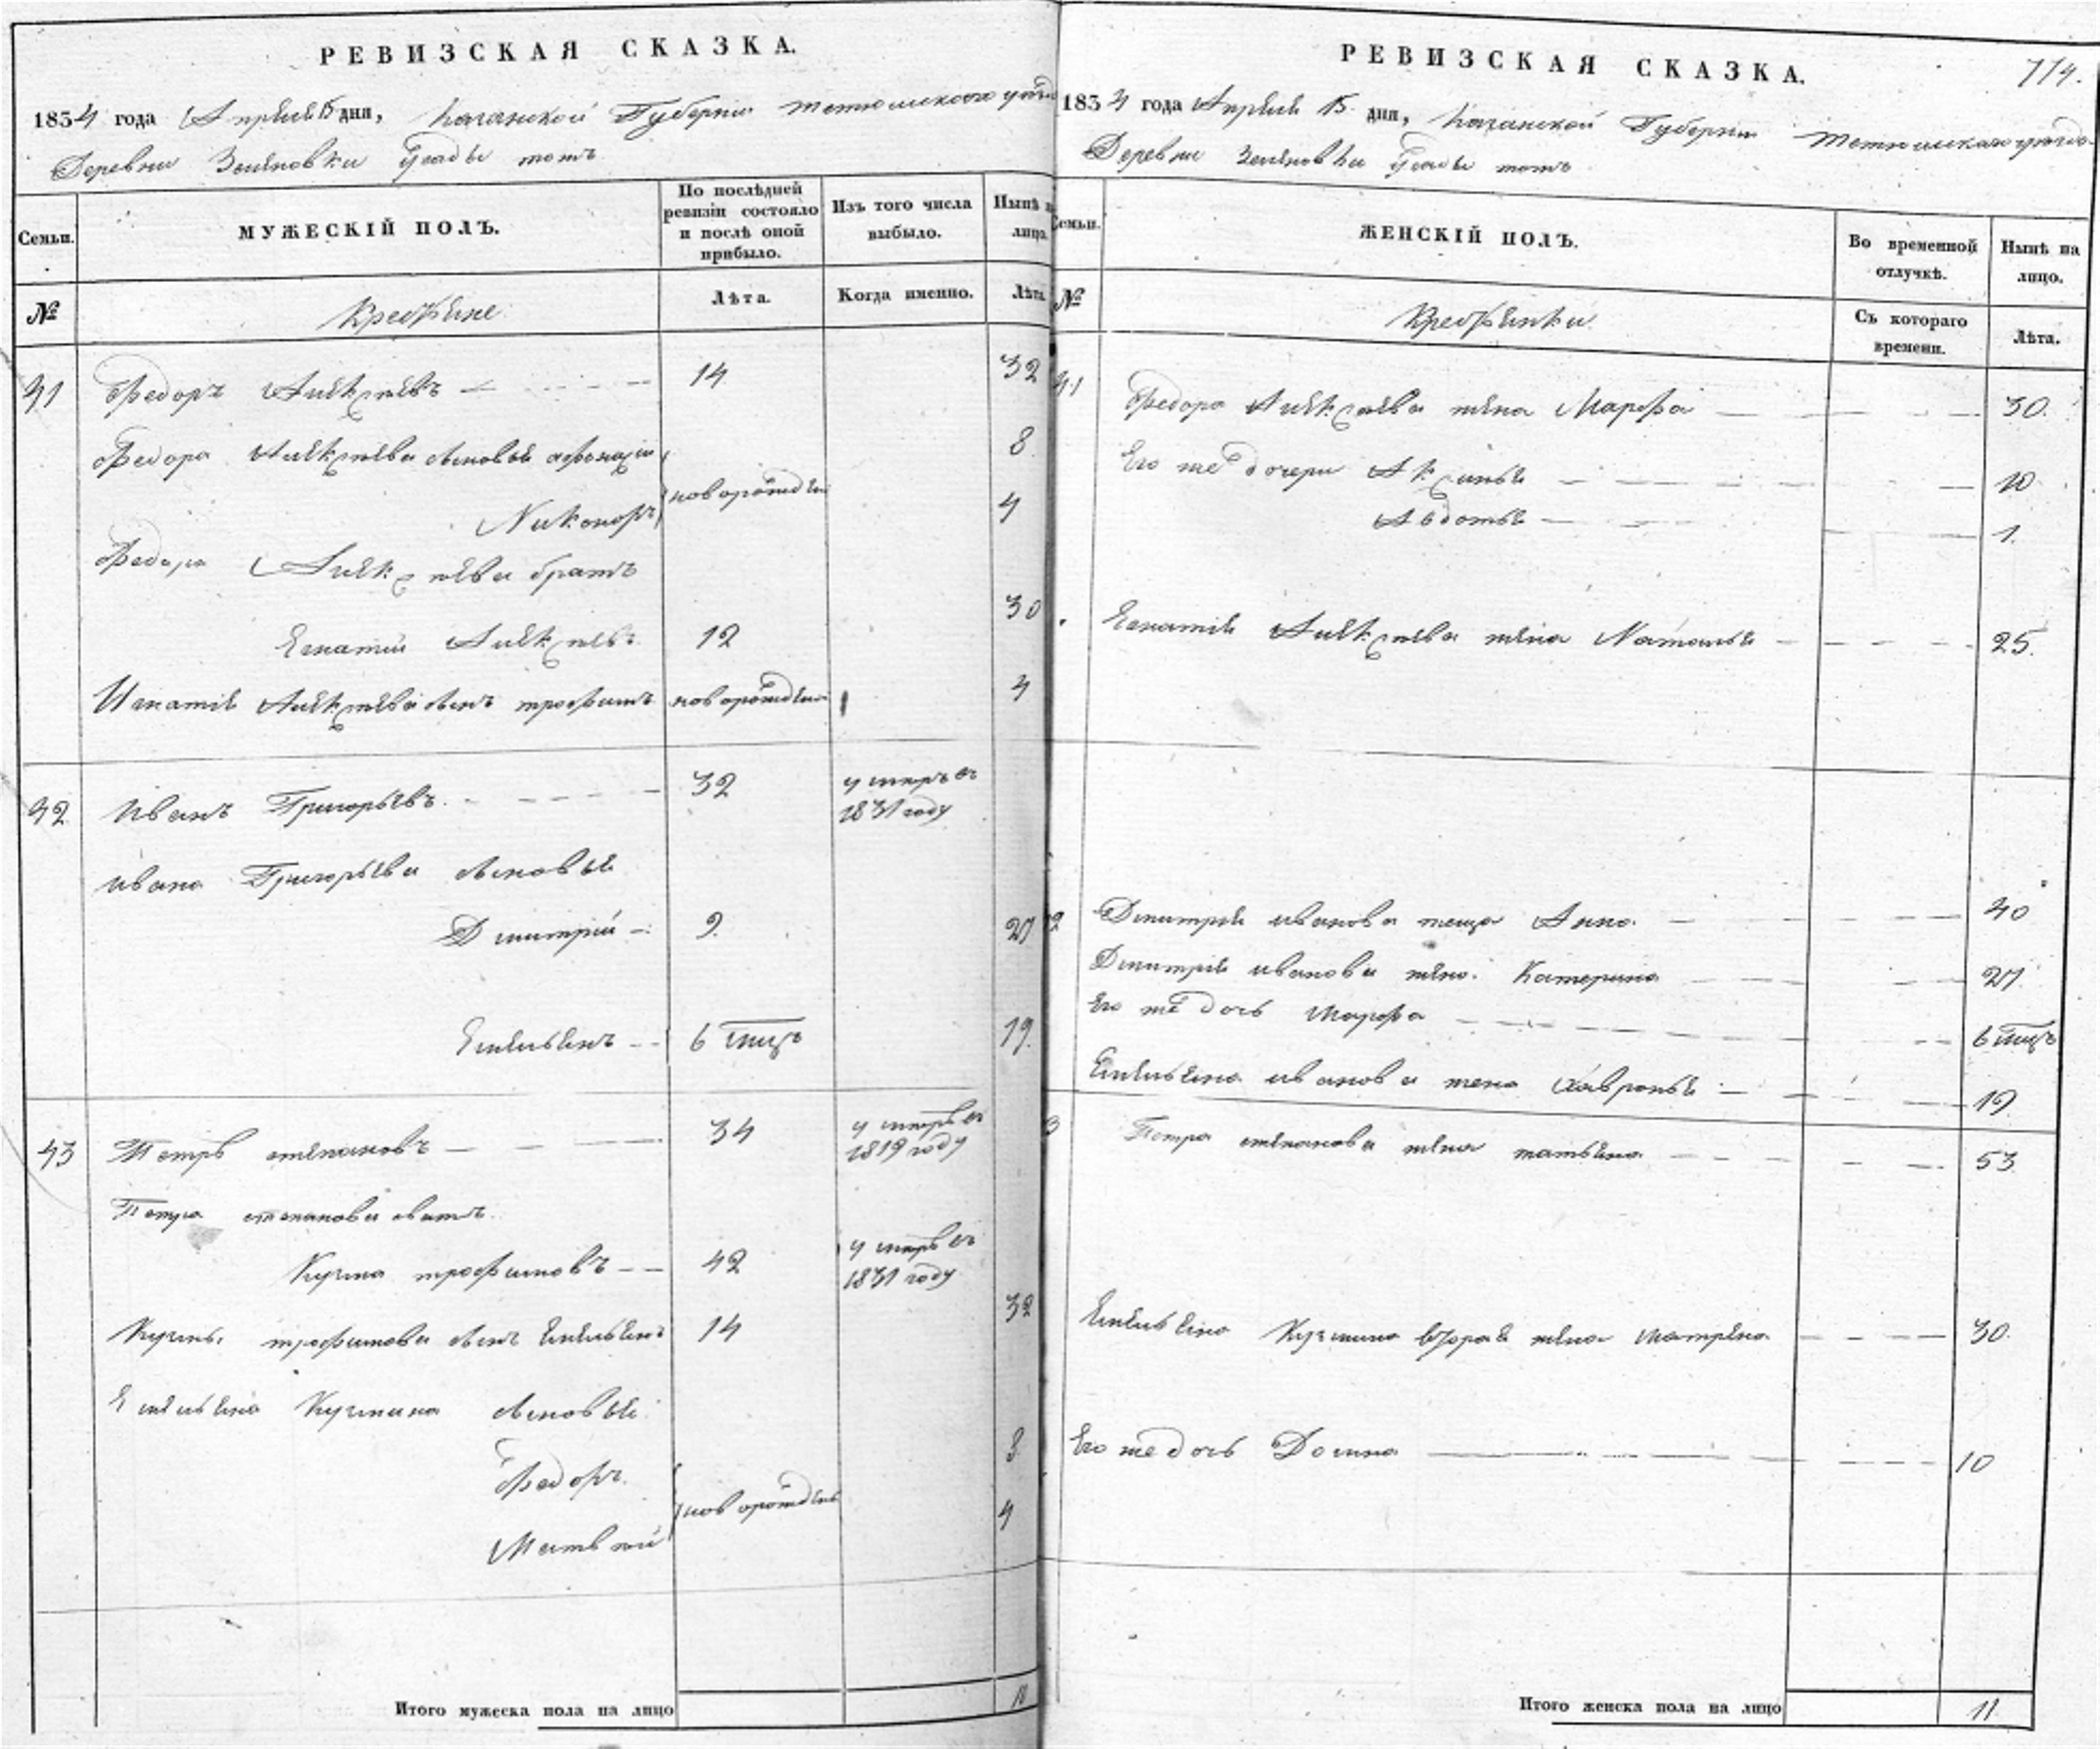 РЕВИЗСКАЯ СКАЗКА.
1834 года Апреля 15 дня, Казанской Губернии Тетюшского уезда
Деревни
МУЖЕСКІЙ ПОЛЪ.
Семьи.
По послѣдней ревизіи состояло и послѣ оной прибыло.
Изъ того числа выбыло.
Нынѣ на лицо.
№
Лѣта.
Когда именно.
Лѣта.
41 Федоръ Алексѣевъ 14 32
Федора Алексѣева сыновья Афонасіи 8
Никоноръ новорожден 4
Федора Алексѣева братъ
Егнатіи Алексѣевъ 12 30
Игнатія Алексѣева сынъ трофимъ новорожден 4
42 Иванъ Григорьевъ 32 умеръ въ 1831 году
Ивана Григорьева сыновья
Дмитрій 9 27
Емельянъ 6 19
43 Петръ степановъ 34 умеръ въ 1819 году
Петра степанова сватъ
Кузма трофимовъ 42 умеръ въ 1831 году
Кузмы трофимова сынъ Емельянъ 14 32
Емельяна Кузмина сыновья
Федоръ 8
Матвѣй новорожден 4
Итого мужеска пола на лицо 11
РЕВИЗСКАЯ СКАЗКА.
714.
1834 года Апреля 15 дня, Казанской Губернии Тетюшскаго уезда
Деревни
Семьи.
ЖЕНСКІЙ ПОЛЪ.
Во временной отлучкѣ.
Нынѣ на лицо.
№
Съ котораго времени.
Лѣта.
41 Федора Алексѣева жена Марфа 30.
Его же дочери Аксинья 10
Авдотья 1.
Егнатія Алексѣева жена Наталья 25.
2 Дмитрія иванова теща Анна 40
Дмитрія иванова жена Катерина 27.
Его же дочь марфа 6
Емельяна иванова жена Хавронья 19
3 Петра степанова жена татьяна 53
Емельяна Кузмина вторая жена матрена 30.
Его же дочь Домна 10
Итого женска пола на лицо 11